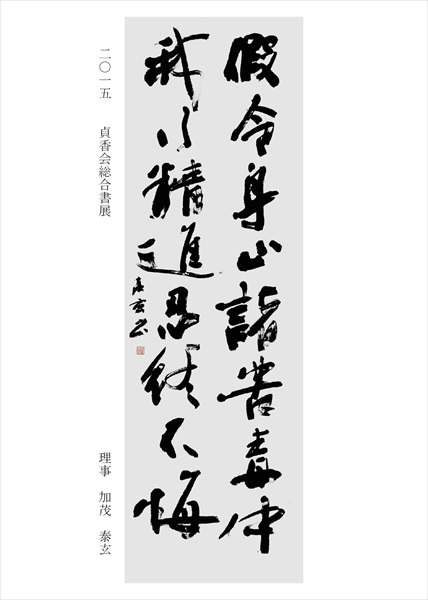 假令身止諸苦毒中
我行精進忍終不悔
泰玄書
二〇一五　貞香会総合書展
理事　加茂　泰玄